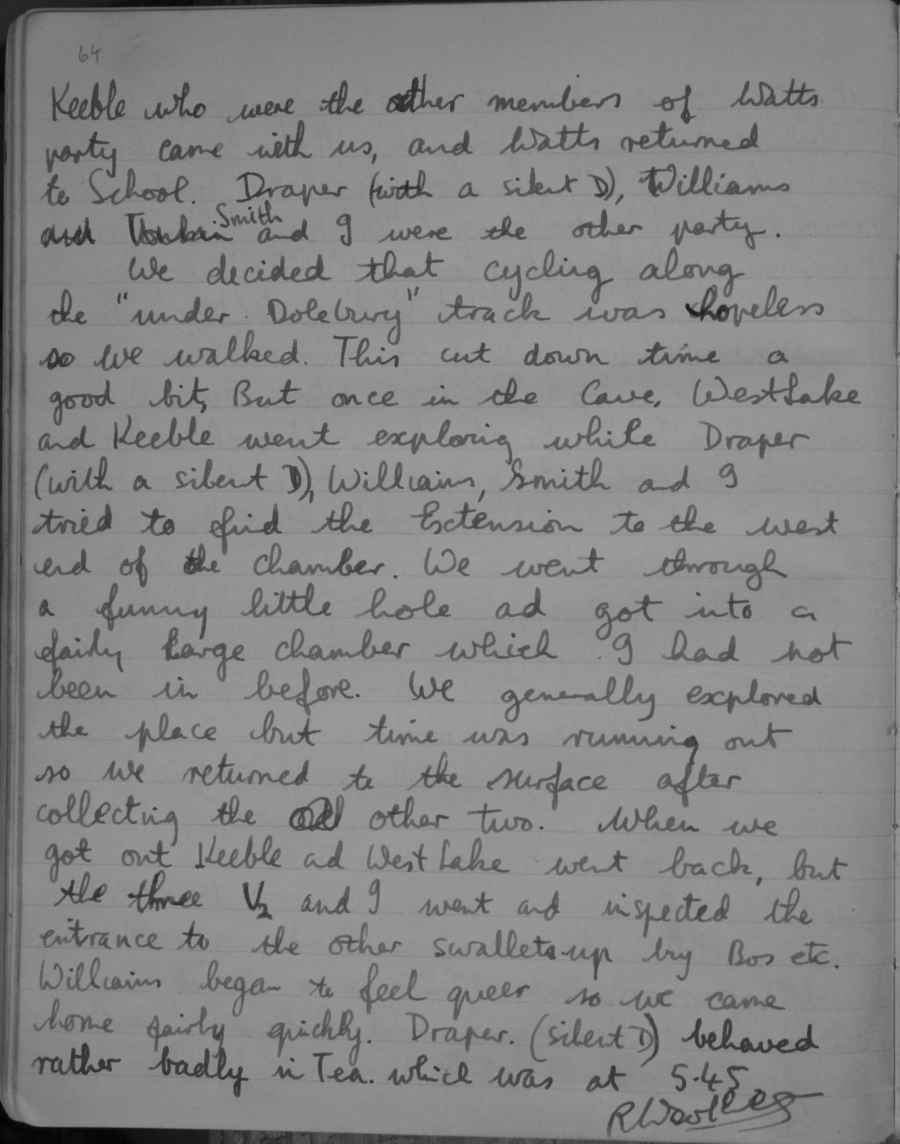 64
Keeble who were the other members of Watts
party came with us, and Watts returned
to School. Draper (with a silent D), Williams
and Smith and I were the other party.
We decided that cycling along
the "under Dolebury" track was hopeless
so we walked. This cut down time a
good bit, But once in the Cave, WestLake
and Keeble went explorig while Draper
(with a silent D), Williams, Smith and I
tried to find the Extension to the west
end of the chamber. We went through
a funny little hole ad got into a
fairly Large chamber which I had not
been in before. We generally explored
the place but time was running out
so we returned to the surface after
collecting the other two. When we
got out Keeble ad WestLake went back, but
the three V2 and I went and inspected the
entrance to the other swallets up by Bos etc.
Williams began to feel queer so we came
home fairly quickly. Draper. (silent D) behaved
rather badly in Tea. which was at 5.45
R Woolley